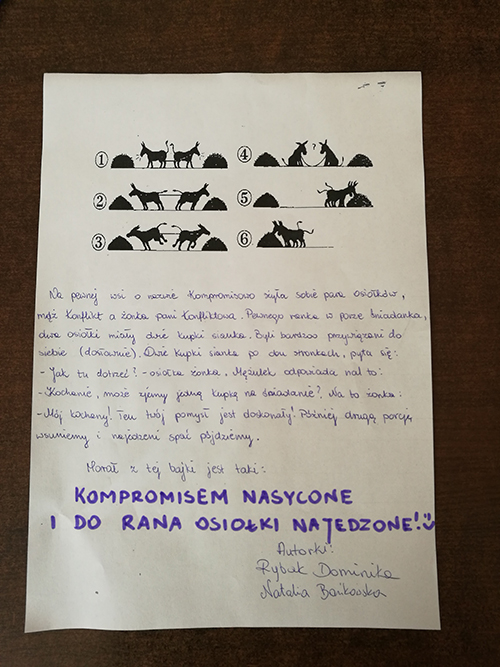 1 4
2 5
3 6
?
Na pewnej wsi o nazwie Kompromisowo żyła sobie para osiołków,
mąż Konflikt a żonka pani Konfliktowa. Pewnego ranka w porze śniadanka,
dwa osiołki miały dwie kupki sianka. Byli bardzo przywiązani do
siebie (dosłownie). Dwie kupki sianka po obu stronach, pyta się:
- Jak tu dotrzeć? - osiołka żonka. Mężulek odpowiada na to:
- Kochanie, może zjemy jedną kupkę na śniadanie? Na to żonka:
- Mój kochany! Ten twój pomysł jest doskonały! Później drugą porcję
wsuniemy i najedzeni spać pójdziemy.
Morał z tej bajki jest taki:
KOMPROMISEM NASYCONE
I DO RANA OSIOŁKI NAJEDZONE!
Autorki:
Rybak Dominika
Natalia Bańkowska